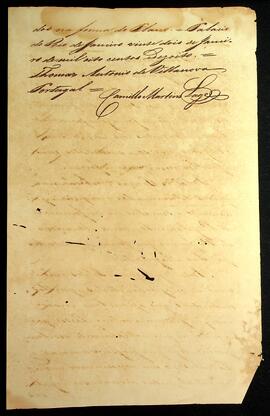 dos na forma do Plano = Palacio
do Rio de Janeiro vinte dois de Janei-
ro de mil oito centos Dezoito =
Thomaz Antonio de Villanova
Portugal =
Camillo Martins Lage